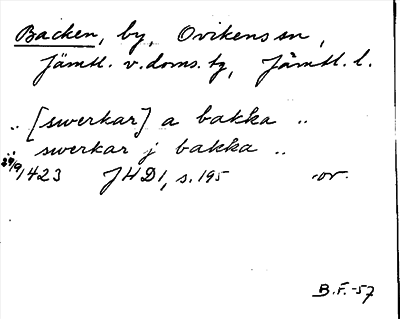 Backen, by, Ovikens sn,
Jämtl. v. doms. tg, Jämtl. l.
.. [swerkar] a bakka ..
.. swerkar j bakka ..
29/9 1423 JHD1, s. 195 or.
B.F. -57